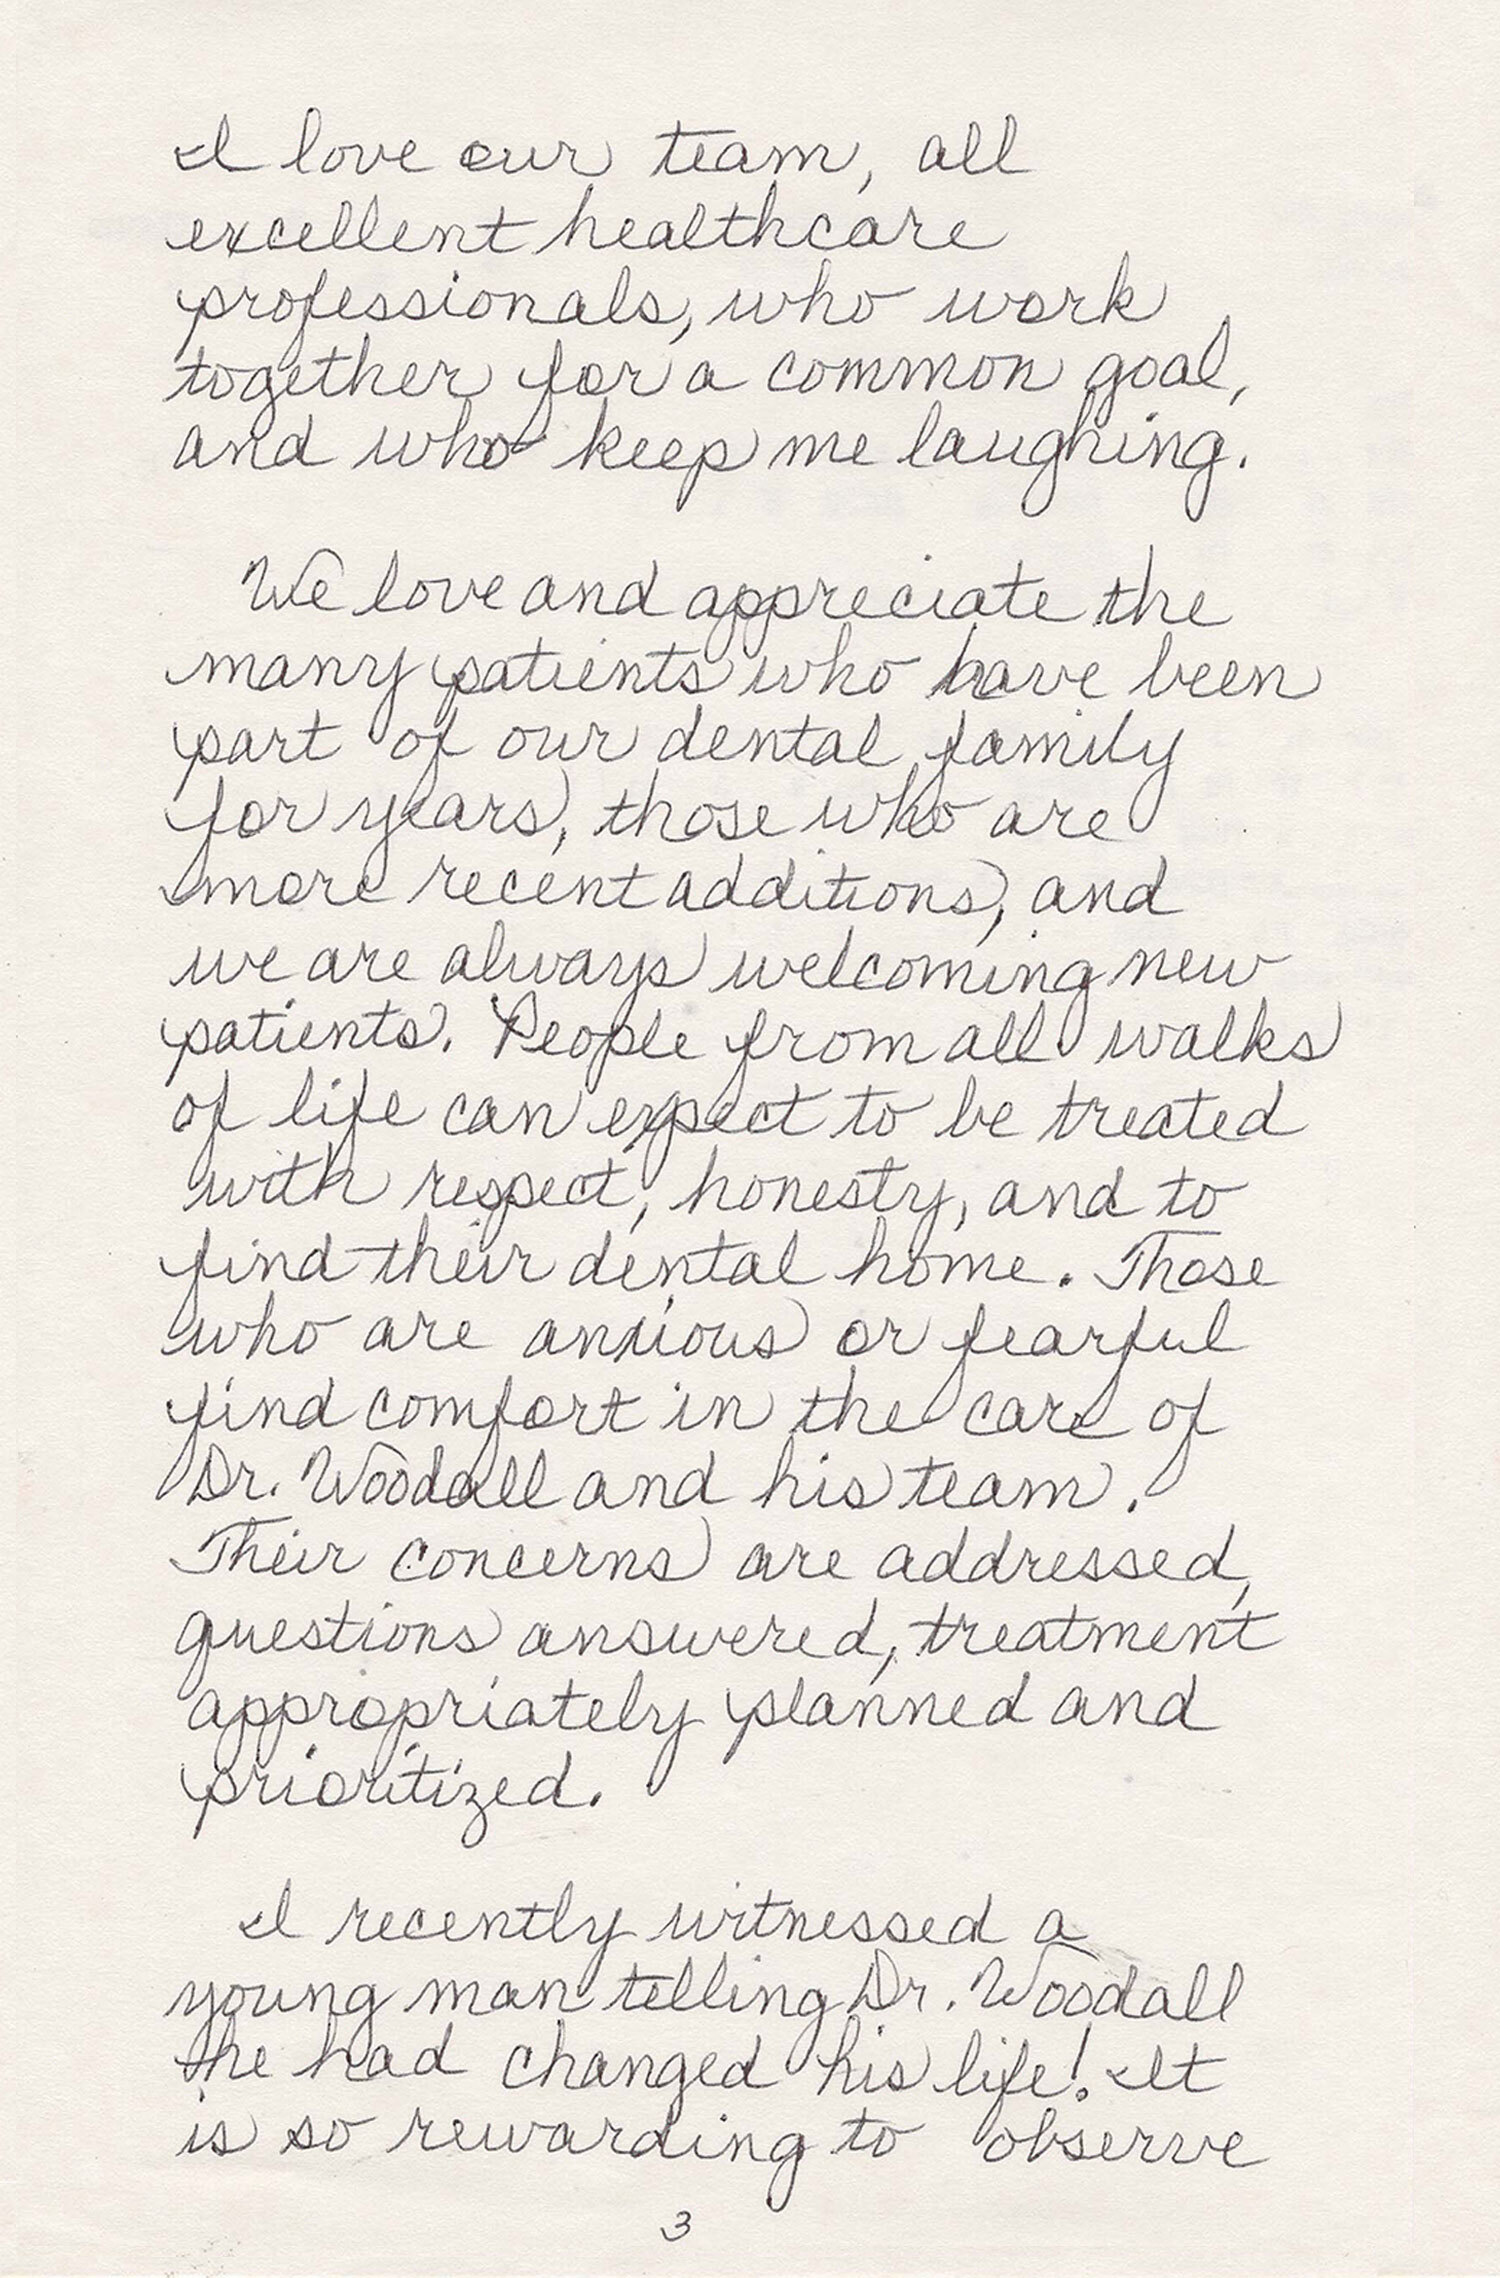 I love our team, all
excellent healthcare
professionals, who work
together for a common goal,
and who keep me laughing.
We love and appreciate the
many patients who have been
part of our dental family
for years, those who are
more recent additions, and
we are always welcoming new
patients. People from all walks
of life can expect to be treated
with respect, honesty, and to
find their dental home. Those
who are anxious or fearful
find comfort in the care of
Dr. Woodall and his team.
Their concerns are addressed,
questions answered, treatment
appropriately planned and
prioritized.
I recently witnessed a
young man telling Dr. Woodall
he had changed his life! It
is so rewarding to observe
3